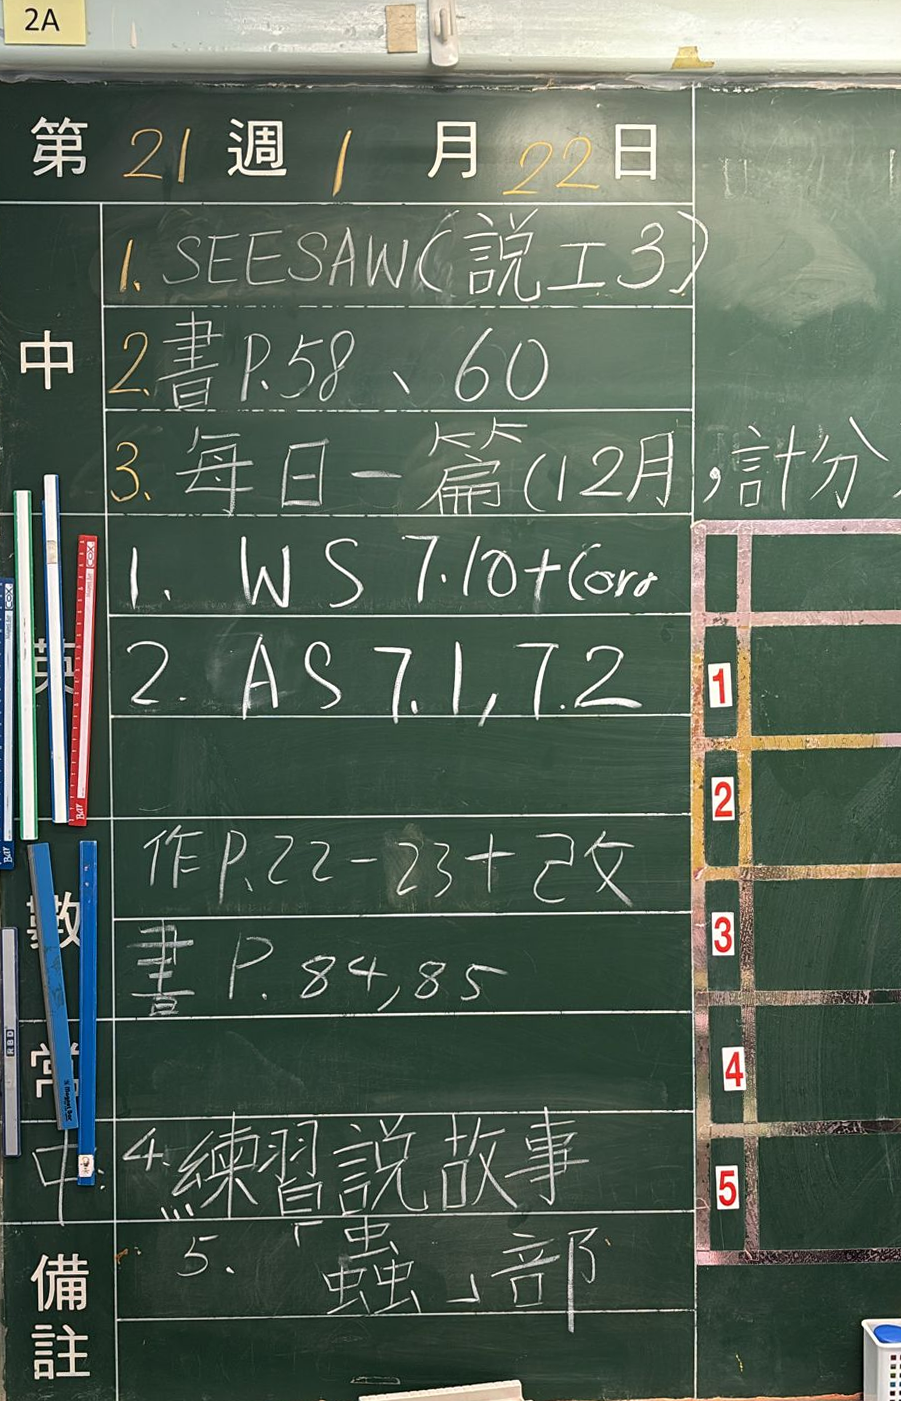 2A
第 21 週 1 月 22 日
中
1. SEESAW(説工3)
2. 書 P.58、60
3. 每日一篇(12月,計分
英
1. WS 7.10+Corr
2. AS 7.1, 7.2
數
作P.22-23+改
書 P. 84,85
常
中:
4. 練習説故事
5. 「蟲」部
備註
1
2
3
4
5